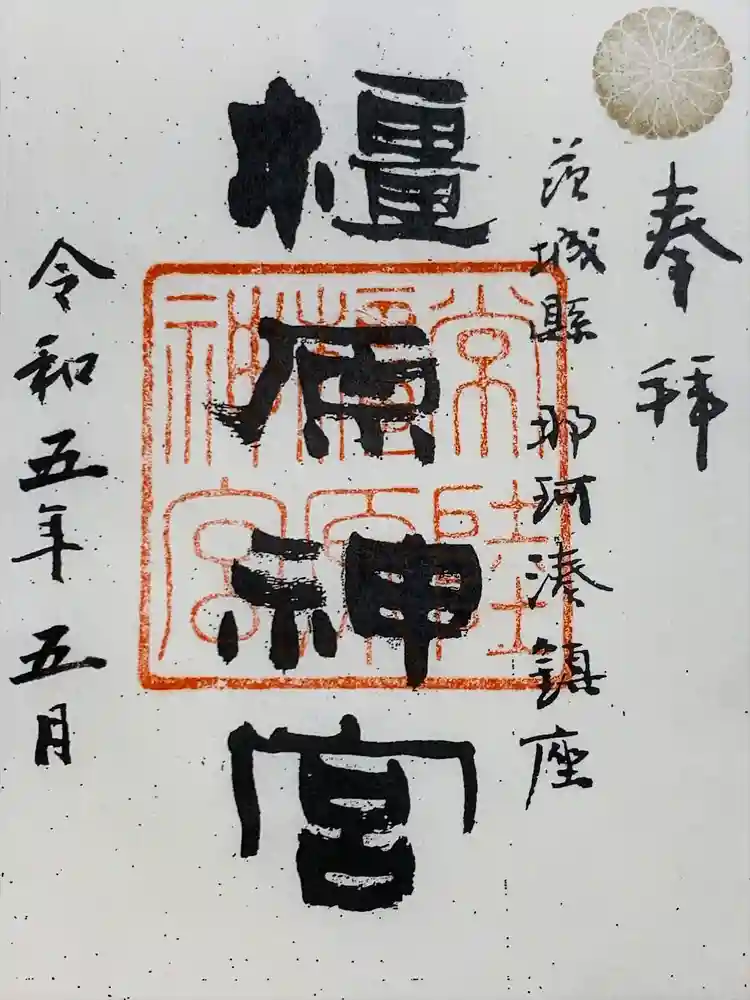 奉拝
茨城縣 那珂湊鎮座
橿原神宮
常陸
橿原
神宮
令和五年 五月